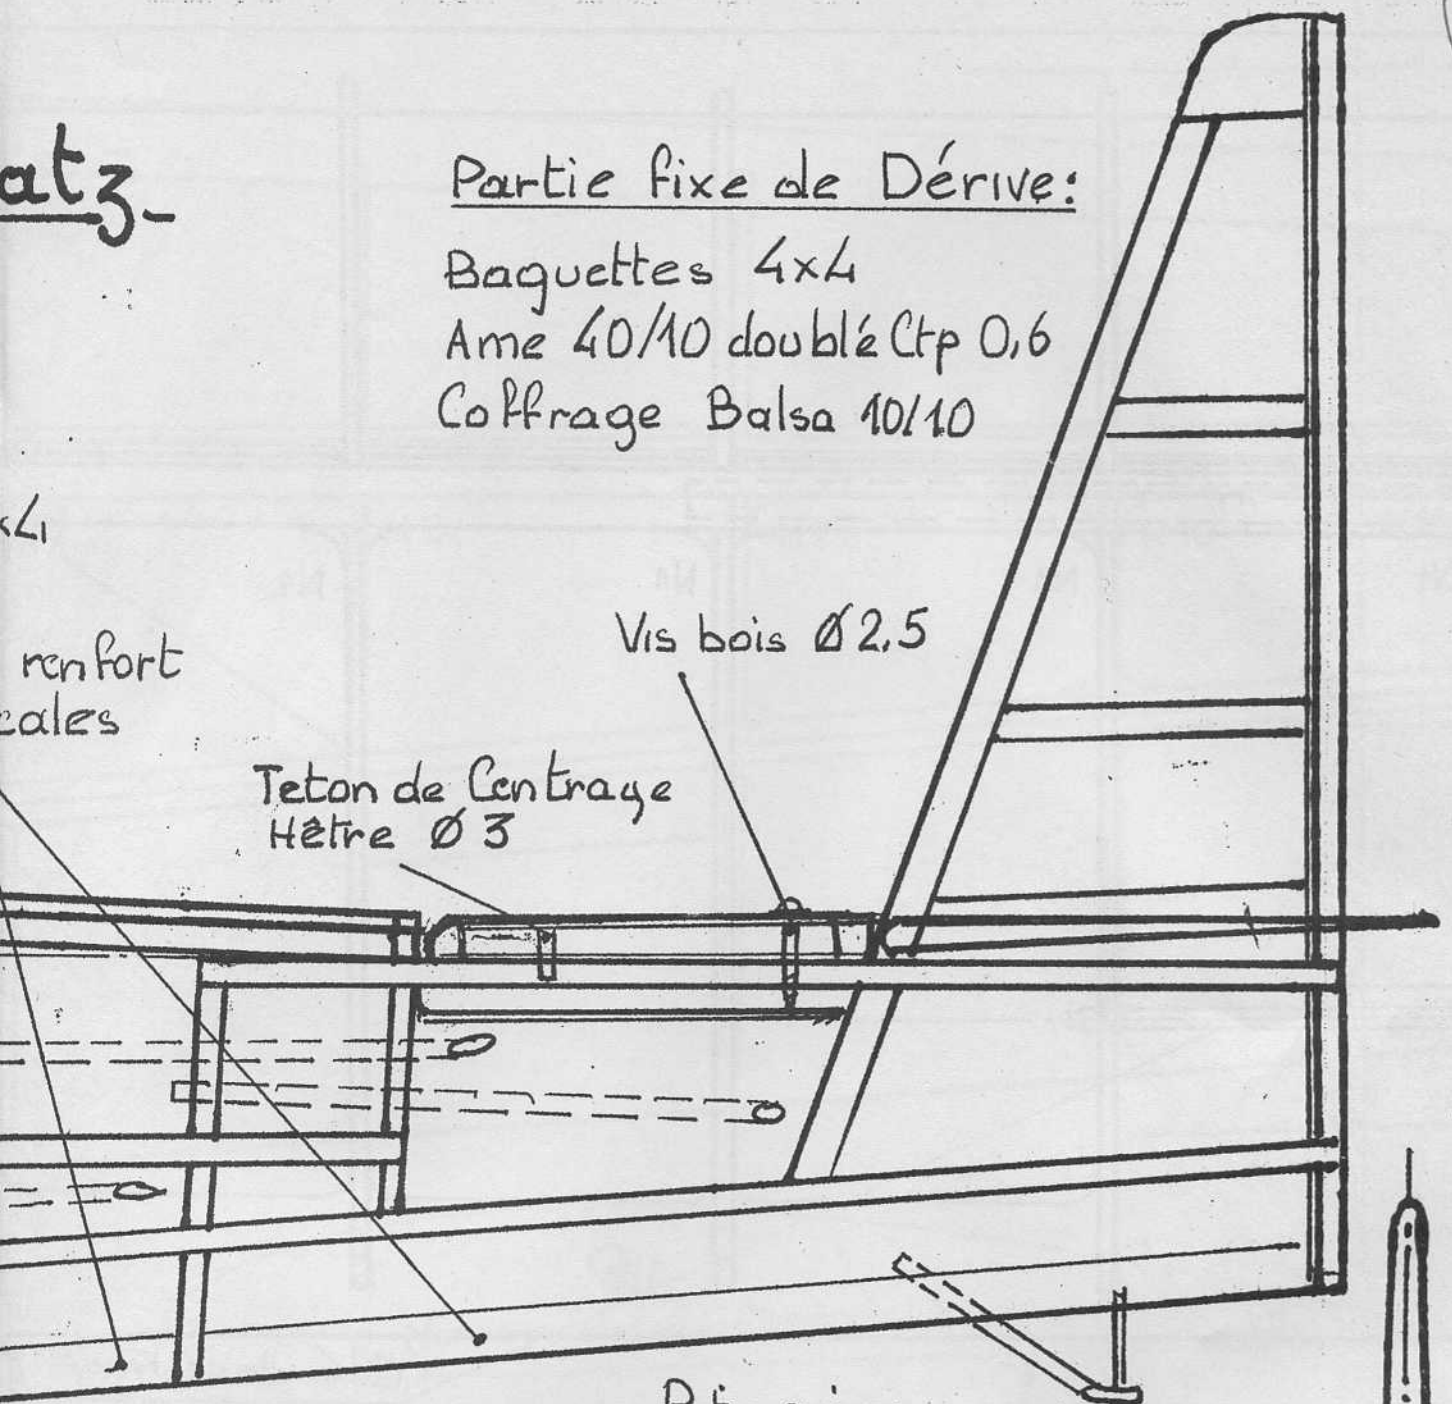 atz
Partie fixe de Dérive:
Baguettes 4x4
Ame 40/10 doublé Ctp 0,6
Coffrage Balsa 10/10
x4
renfort
cales
Vis bois Ø 2,5
Teton de Centrage
Hêtre Ø 3